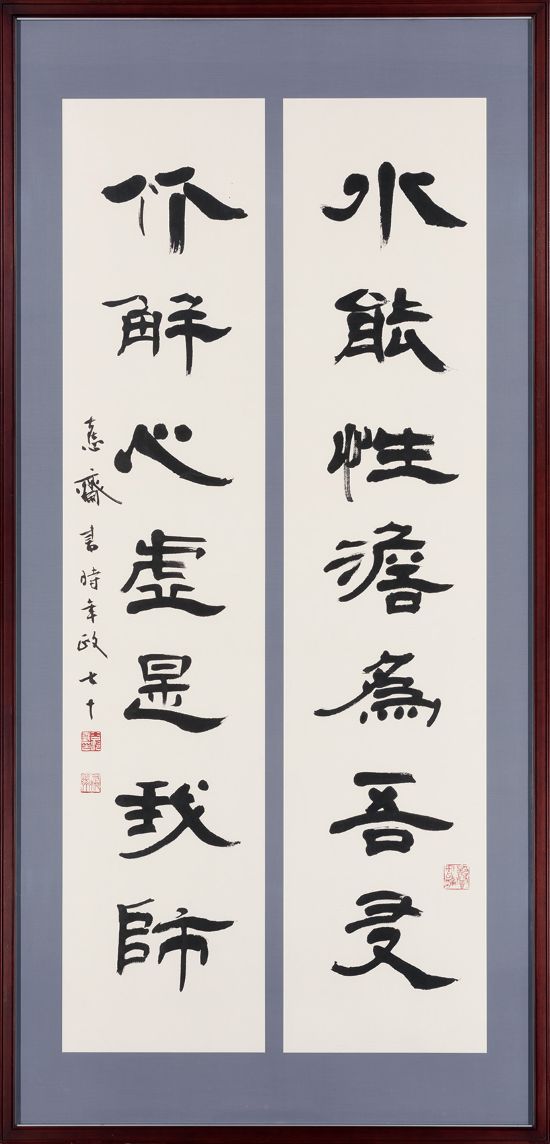 水能性澹為吾友
竹解心虛是我師
齋書時年政七十